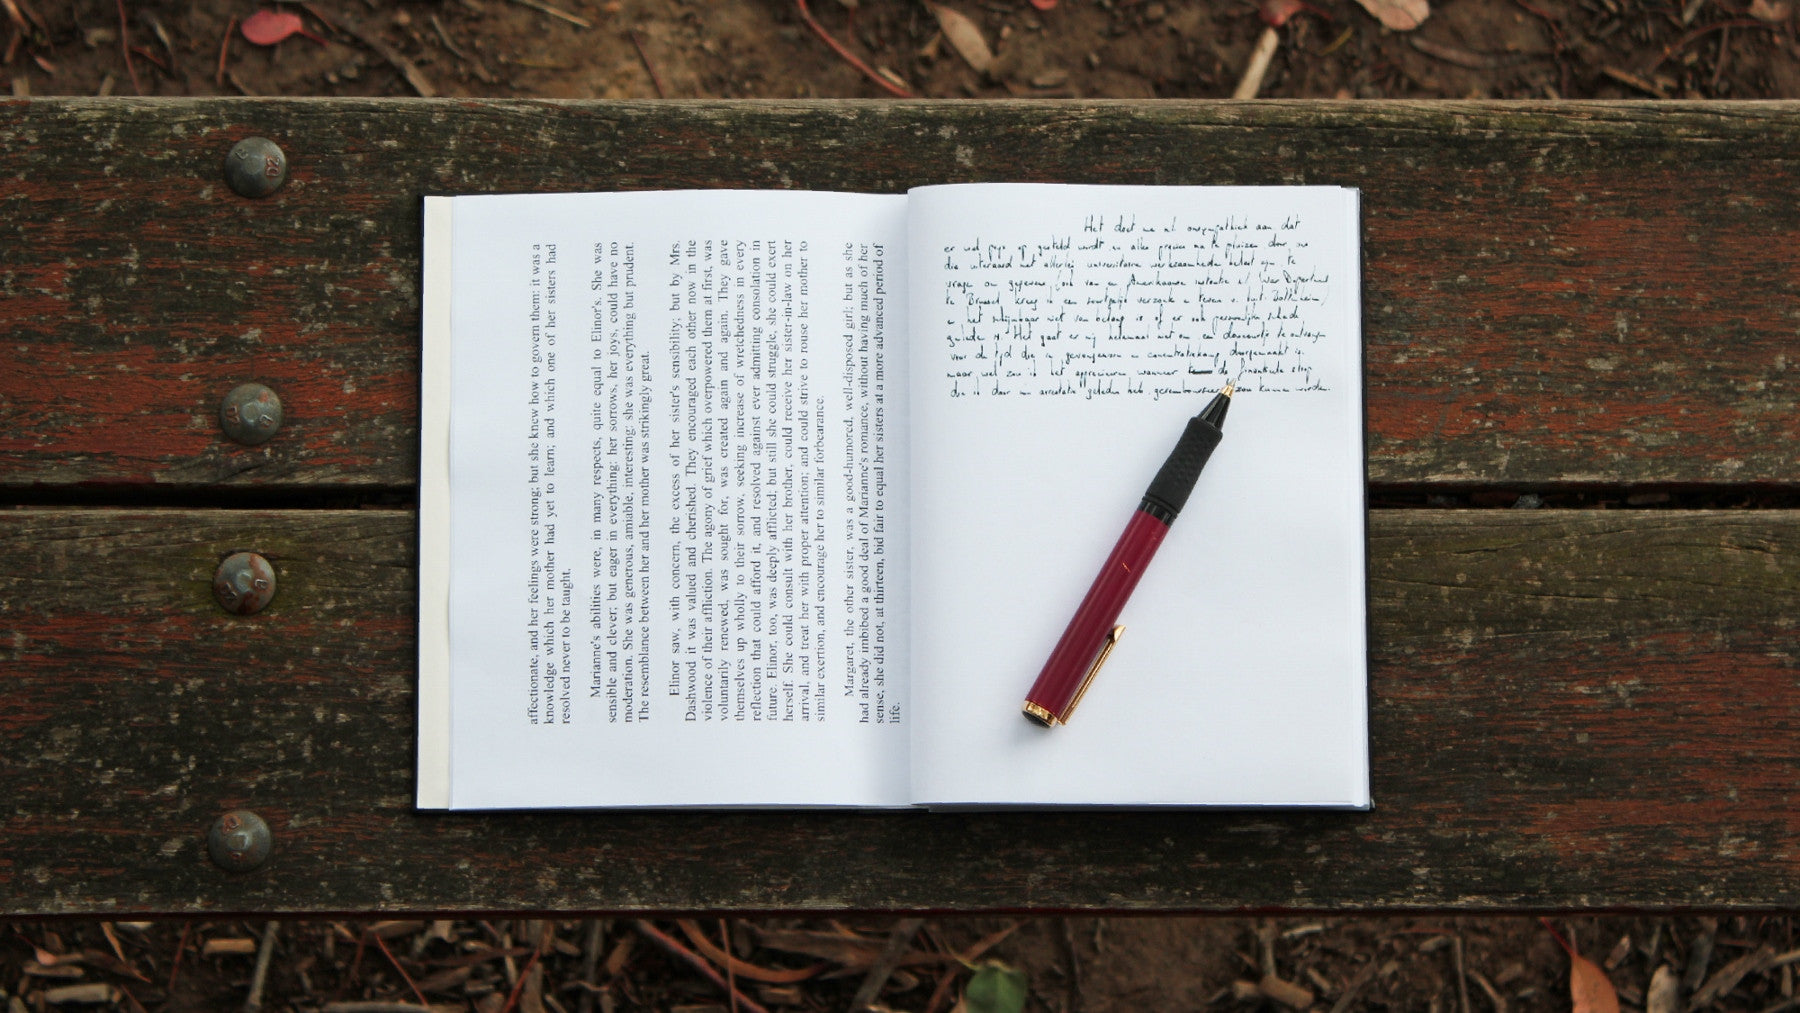 affectionate, and her feelings were strong; but she knew how to govern them: it was a
knowledge which her mother had yet to learn; and which one of her sisters had
resolved never to be taught.
Marianne's abilities were, in many respects, quite equal to Elinor's. She was
sensible and clever; but eager in everything: her sorrows, her joys, could have no
moderation. She was generous, amiable, interesting: she was everything but prudent.
The resemblance between her and her mother was strikingly great.
Elinor saw, with concern, the excess of her sister's sensibility; but by Mrs.
Dashwood it was valued and cherished. They encouraged each other now in the
violence of their affliction. The agony of grief which overpowered them at first, was
voluntarily renewed, was sought for, was created again and again. They gave
themselves up wholly to their sorrow, seeking increase of wretchedness in every
reflection that could afford it, and resolved against ever admitting consolation in
future. Elinor, too, was deeply afflicted; but still she could struggle, she could exert
herself. She could consult with her brother, could receive her sister-in-law on her
arrival, and treat her with proper attention; and could strive to rouse her mother to
similar exertion, and encourage her to similar forbearance.
Margaret, the other sister, was a good-humored, well-disposed girl; but as she
had already imbibed a good deal of Marianne's romance, without having much of her
sense, she did not, at thirteen, bid fair to equal her sisters at a more advanced period of
life.
Het doet me al onsympathiek aan, dat
er wel op gesteld wordt en alle na te pluizen door, nu
die uiteraard met allerlei universitaire werkzaamheden belast zijn, te
vragen om gegevens, ook van een Amerikaanse instantie
te Brussel kreeg ik een verzoek
het niet van belang is of er ook persoonlijke schade
geleden is. Het gaat er mij helemaal niet om een te ontvangen
voor de tijd die in gevangenissen en concentratiekamp doorgemaakt is
maar wel zou ik het appreciëren wanneer de financiële strop
die ik door mijn arrestatie geleden heb, zou kunnen worden.